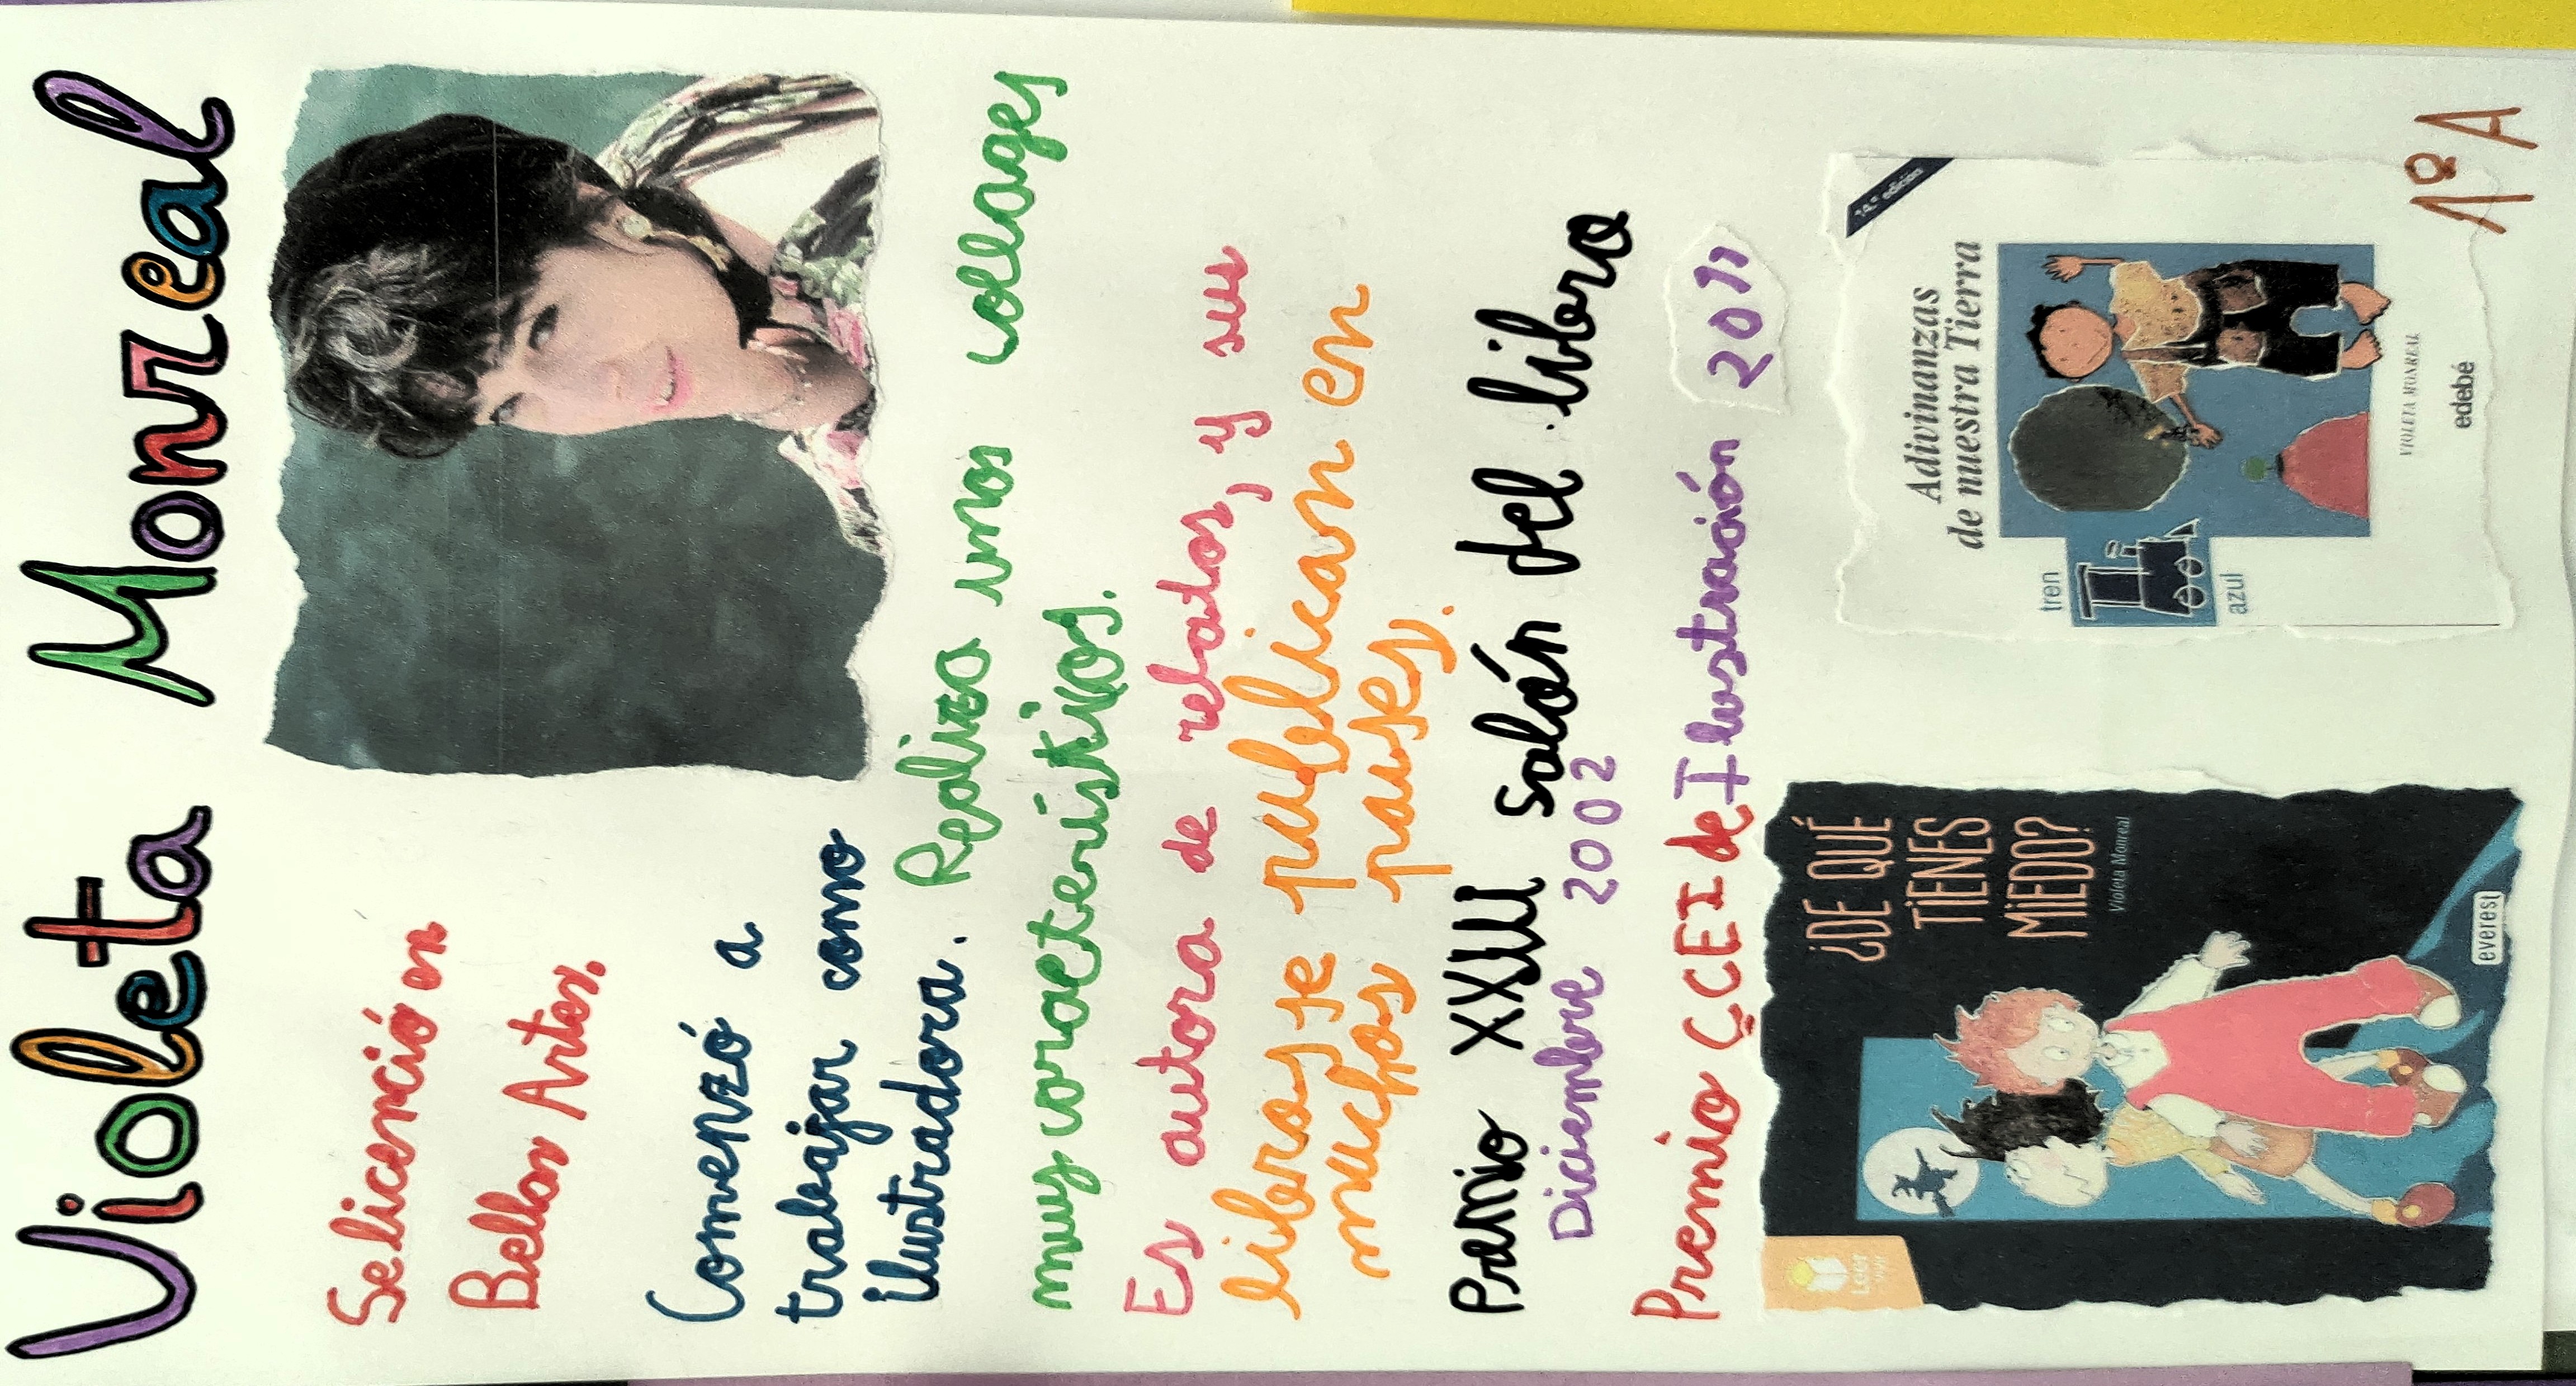 Violeta Monreal
Se licenció en
Bellas Artes.
Comenzó a
trabajar como
ilustradora. Realiza unos collages
muy característicos.
Es autora de relatos, y sus
libros se publican en
muchos países.
Premio XXIII salón del libro
Diciembre 2002
Premio CCEI de Ilustración 2011
¿DE QUÉ
TIENES
MIEDO?
Violeta Monreal
Leer
everest
14.ª edición
Adivinanzas
de nuestra Tierra
tren
azul
VIOLETA MONREAL
edebé
1º A